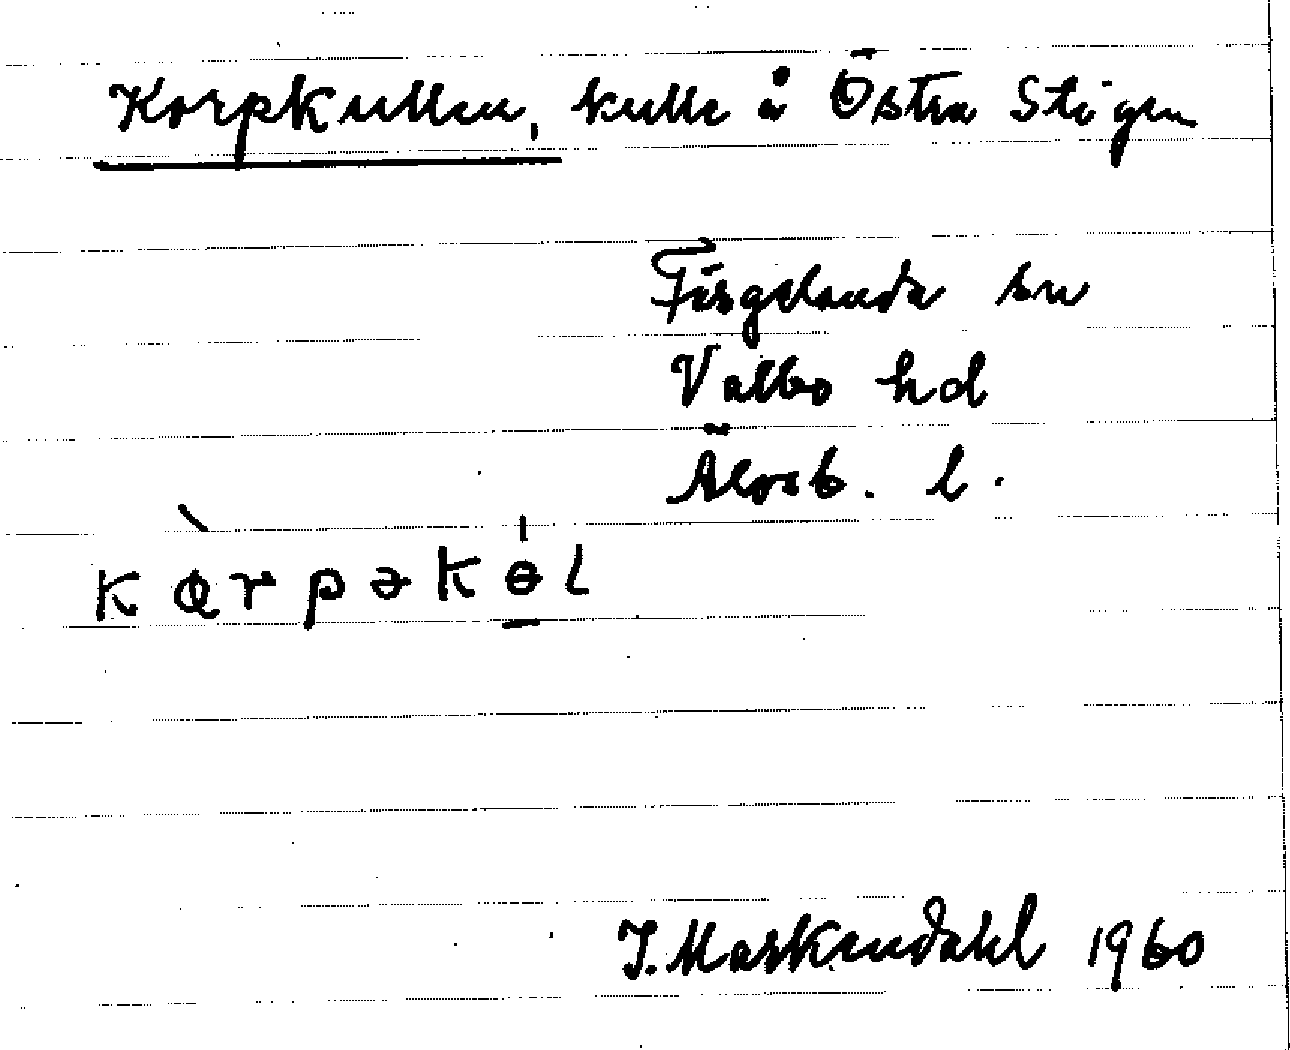 Korpkullen, kulle å Östra Stigen
Färgelanda sn
Valbo hd
Älvsb. l.
kàrpəkɵ̠́l
J. Markendahl 1960